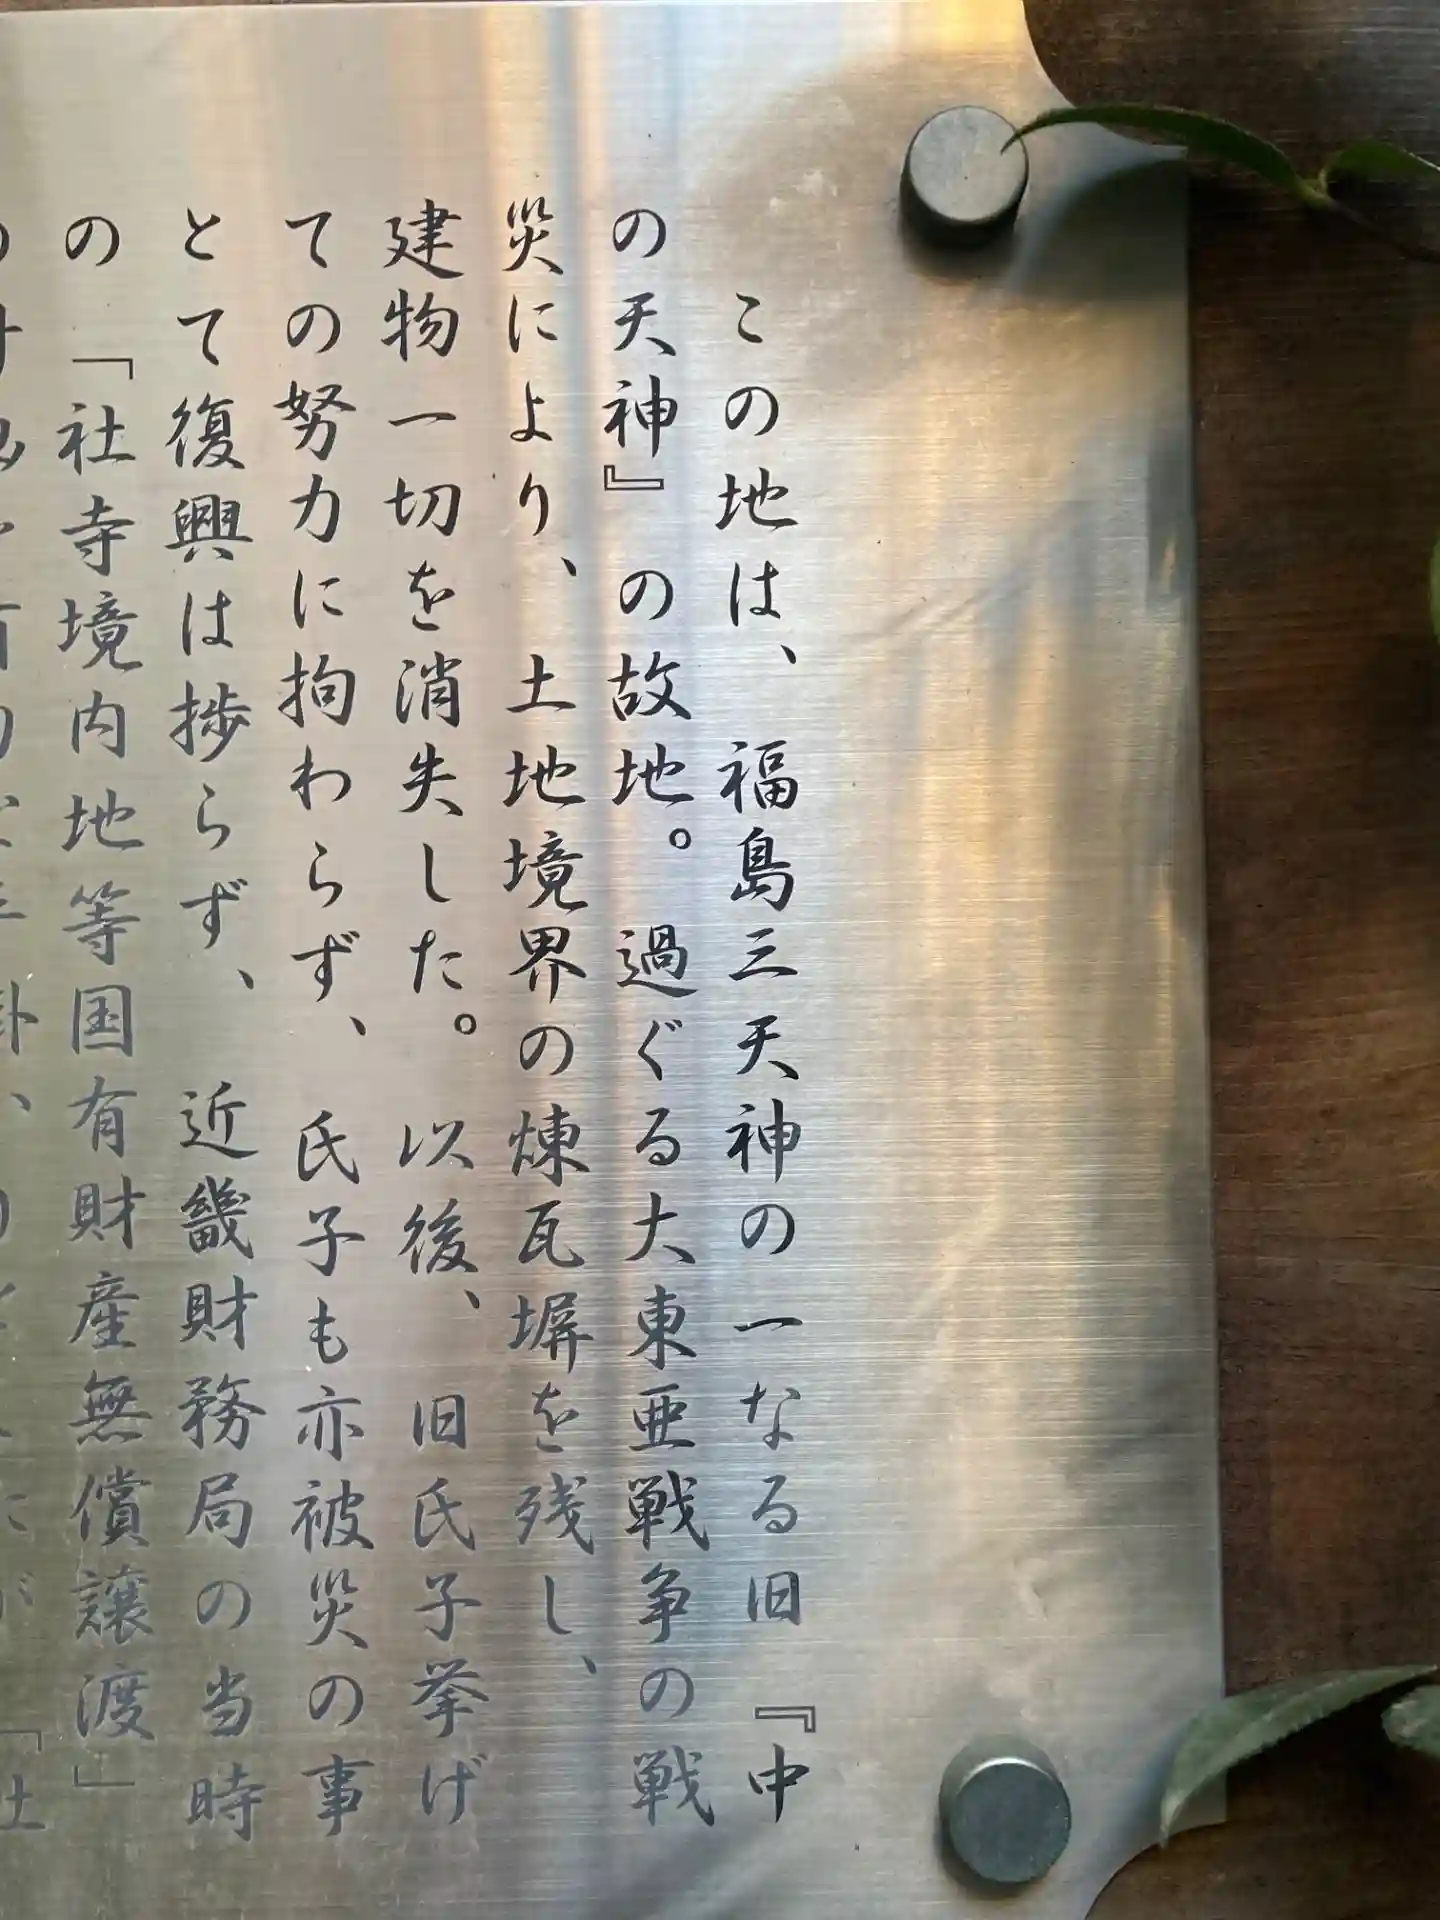 この地は、福島三天神の一なる旧『中
の天神』の故地。過ぐる大東亜戦争の戦
災により、土地境界の煉瓦塀を残し、
建物一切を消失した。以後、旧氏子挙げ
ての努力に拘わらず、氏子も亦被災の事
とて復興は捗らず、近畿財務局の当時
の「社寺境内地等国有財産無償譲渡」